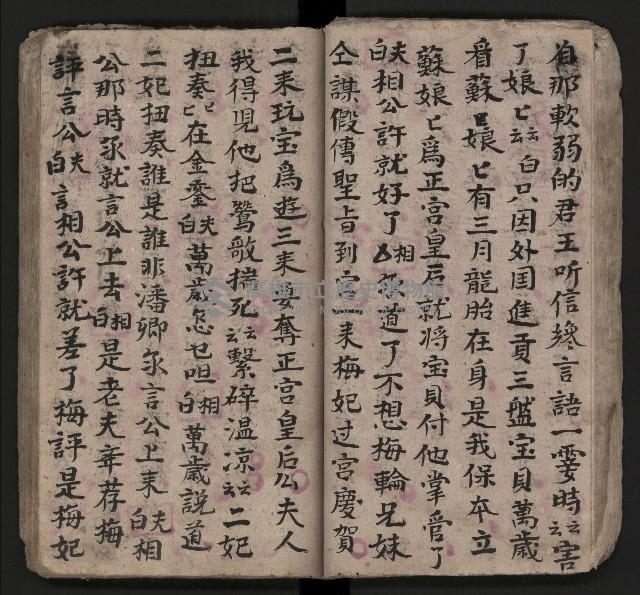 自那軟弱的君王听信纔言語一霎時云云害
了娘匕云云白只因外国進貢三盤宝貝萬歲
看蘇娘匕有三月龍胎在身是我保卒立
蘇娘匕為正宮皇后就将宝貝付他掌管了
夫白相公許就好了相道了不想梅輪兄妹
仝謀假傳聖旨到宮来梅妃过宮慶賀
二来玩宝為遊三来要奪正宮皇后公夫人
我得見他把鶯歌揣死云云繫碎温凉云云二妃
扭奏匕在金鑾夫白萬歲怎乜呾相白萬歲説道
二妃扭奏誰是誰非潘卿尔言公上来夫白相
公那時尔就言公上去相白是老夫奔荐梅
評言公夫白言相公許就差了梅評是梅妃